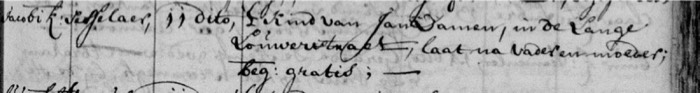 Jacobi k: Sesselaer, 11 dito, 't Kind van Jan Damen, in de Lange
Louwerstraet, laat na vader en moeder;
Beg: gratis; —